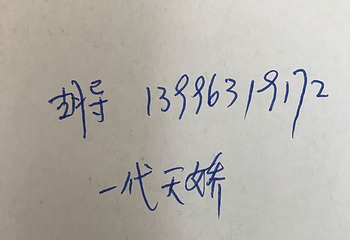 胡导 13996319172
一代天娇